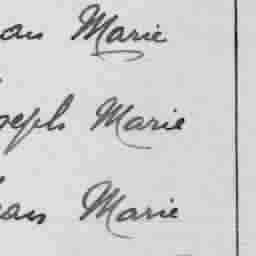 an Marie
oseph Marie
ean Marie